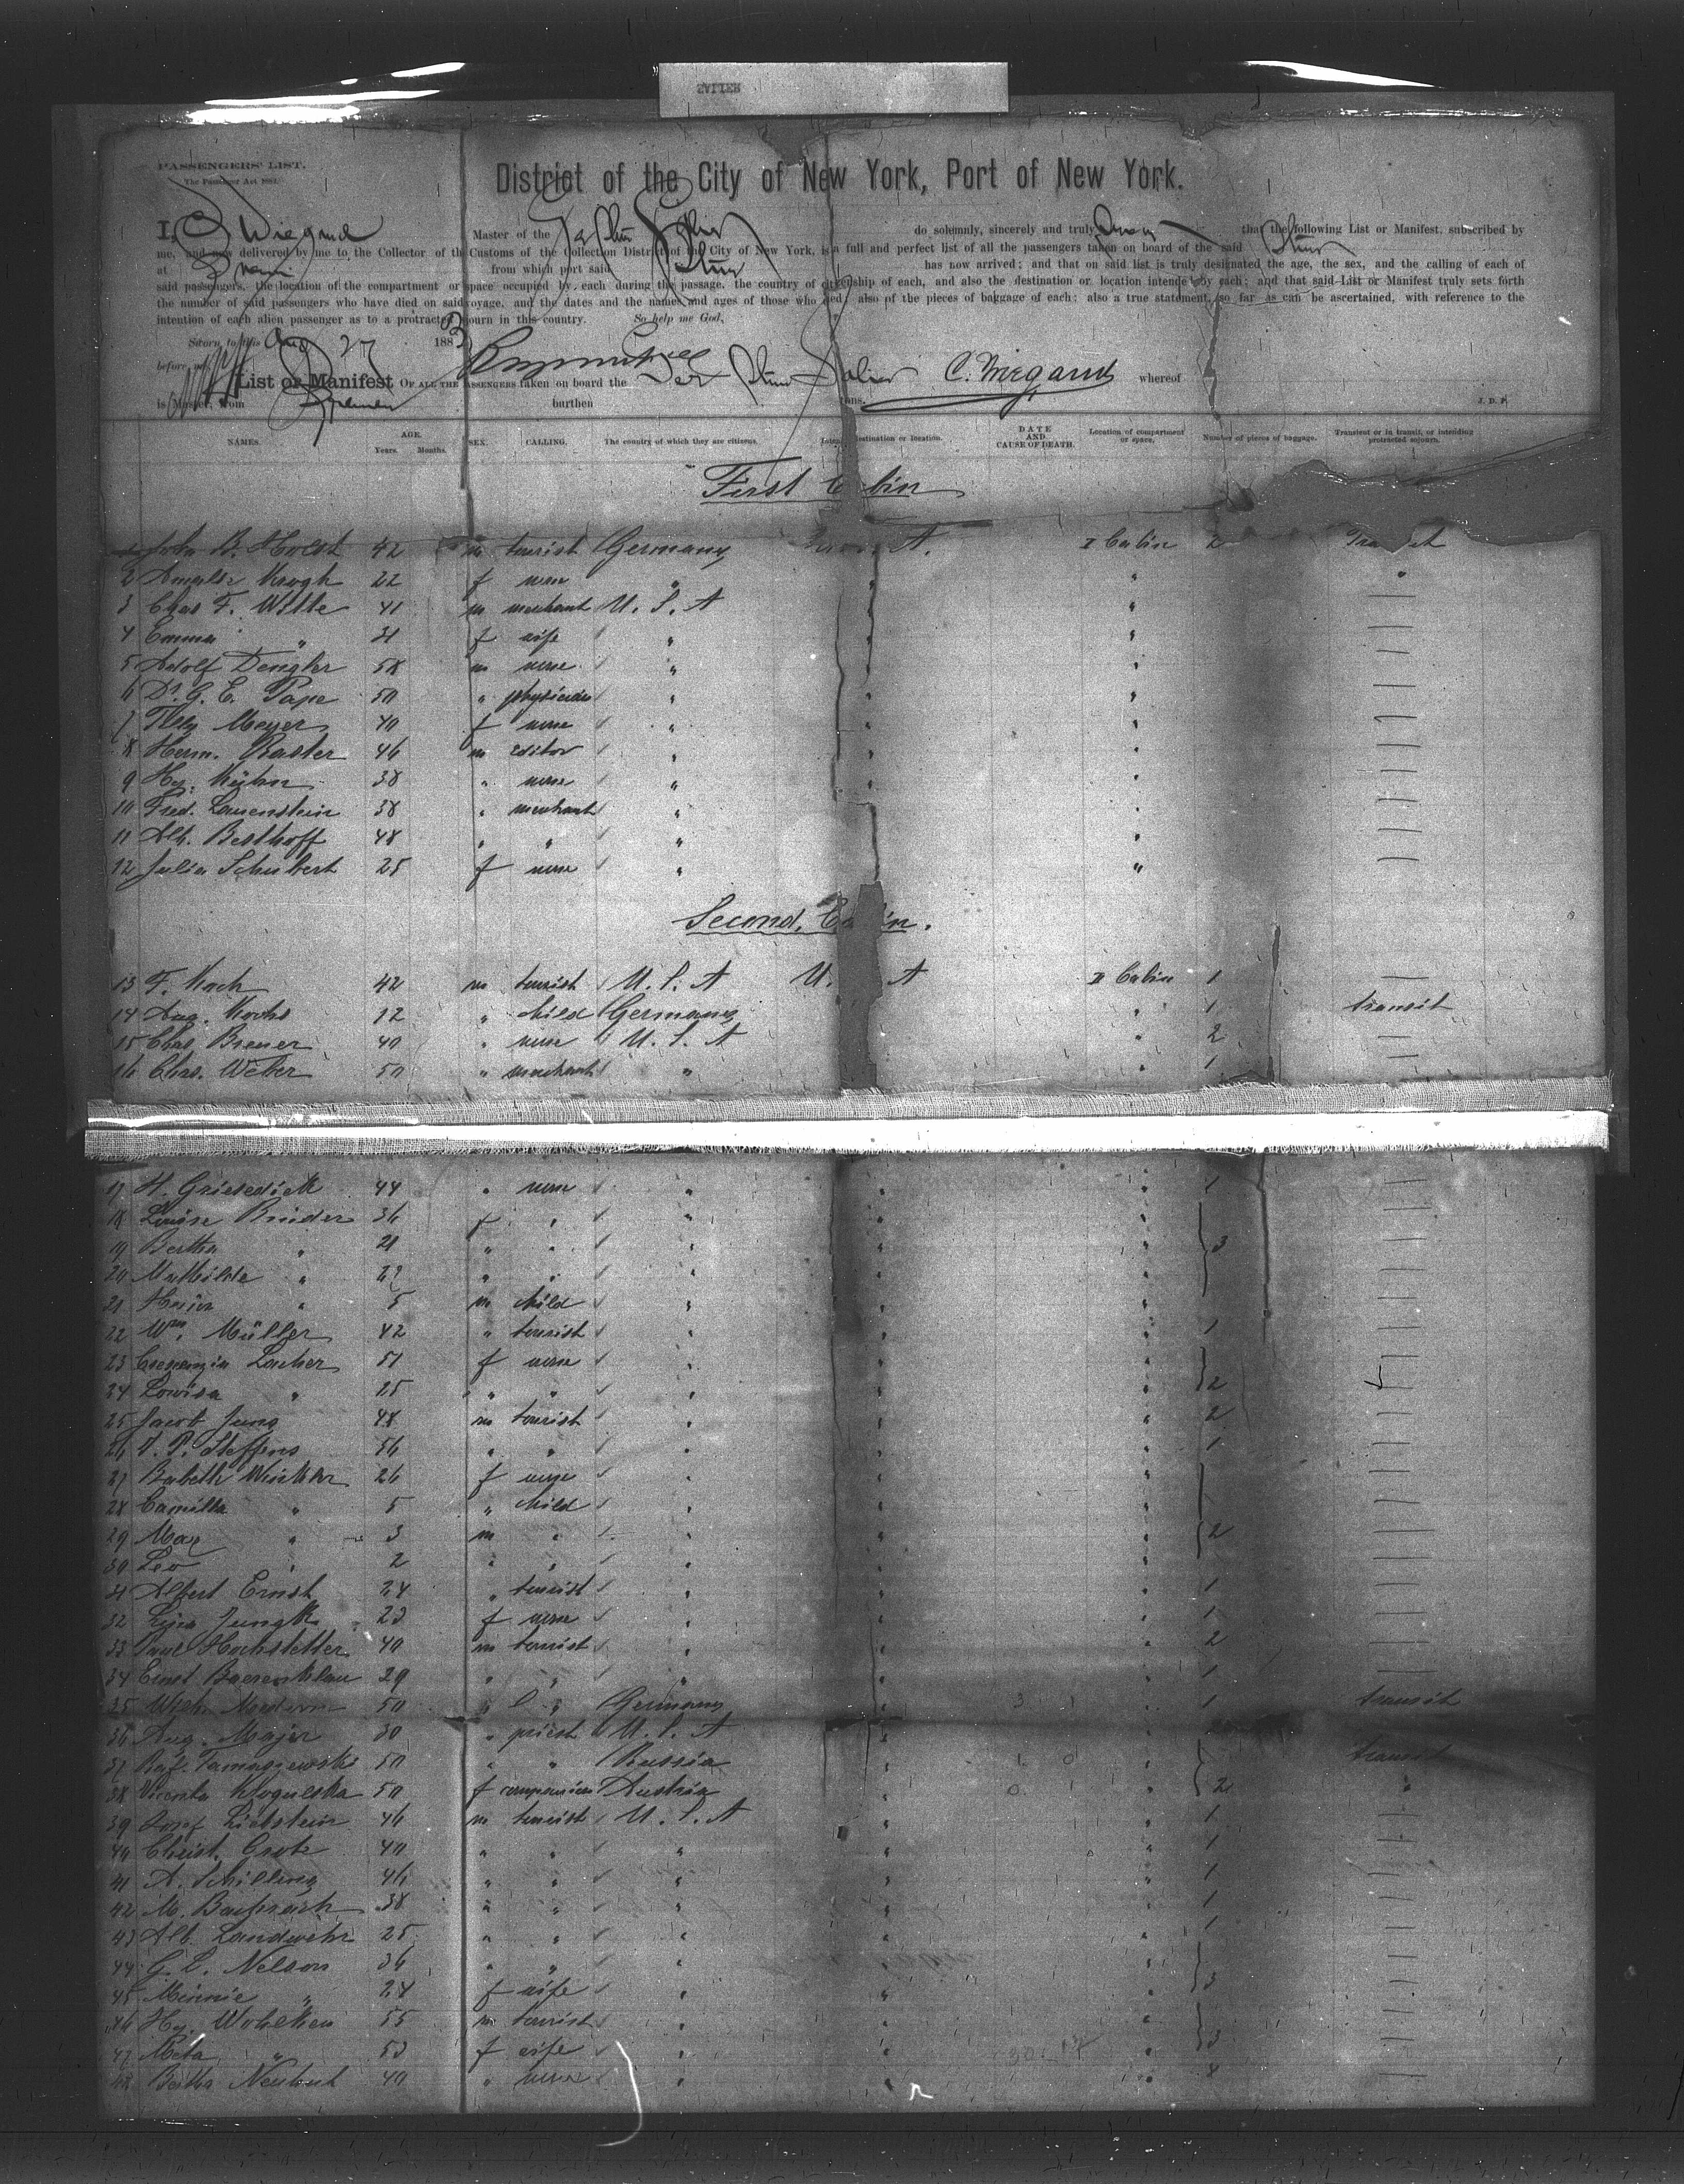 PASSENGERS' LIST.
The Passenger Act 1882.
District of the City of New York, Port of New York.
I, C Wiegand Master of the do solemnly, sincerely and truly swear that the following List or Manifest, subscribed by
me, and now delivered by me to the Collector of the Customs of the Collection District of the City of New York, is a full and perfect list of all the passengers taken on board of the said
at from which port said has now arrived; and that on said list is truly designated the age, the sex, and the calling of each of
said passengers, the location of the compartment or space occupied by each during the passage, the country of citizenship of each, and also the destination or location intended by each; and that said List or Manifest truly sets forth
the number of said passengers who have died on said voyage, and the dates and the names and ages of those who died; also of the pieces of baggage of each; also a true statement, so far as can be ascertained, with reference to the
intention of each alien passenger as to a protracted sojourn in this country. So help me God.
Sworn to this Aug 27 1883
before me
List or Manifest OF ALL THE PASSENGERS taken on board the Salier C. Wiegand whereof
is Master, from Bremen burthen tons. J. D. P.
NAMES. AGE. Years. Months. SEX. CALLING. The country of which they are citizens. Intended destination or location. DATE AND CAUSE OF DEATH. Location of compartment or space. Number of pieces of baggage. Transient or in transit, or intending protracted sojourn.
First Cabin
1 John B. Holst 42 m tourist Germany A. I Cabin 2 Transit
2 Krogh 22 f none " " " "
3 Chas F. Witte 41 m merchant U. S. A " " —
4 Emma " 31 f wife " " " —
5 Adolf Dengler 58 m none " " " —
6 Dr. G. E. Pape 50 " physician " " " —
7 Meyer 40 f none " " " —
8 Herm. Raster 46 m editor " " " —
9 Hy. Kühn 38 " none " " " —
10 Fred. Lauenstein 38 " merchant " " —
11 Alb. Besthoff 48 " " " " —
12 Julia Schubert 25 f none " " —
Second Cabin.
13 F. Koch 42 m tourist U. S. A U. A II Cabin 1 —
14 Aug. Kochs 12 " child Germany " 1 transit
15 Chas. Breuer 40 " none U. S. A " 2 —
16 Chas. Weber 50 " merchant " " 1 —
17 H. Griesedieck 44 " none " " " 1 —
18 Louise Binder 36 f " " " " —
19 Bertha " 21 " " " " " 3 —
20 Mathilde " " " " " " —
21 " 5 m child " " " —
22 Wm. Müller 42 " tourist " " " 1 —
23 Crescenzia Lacher 51 f none " " " —
24 Lowisa " 25 " " " " " 2
25 Jacob Jung 48 m tourist " " " 2 —
26 Steffens 56 " " " " " 1 —
27 Babeth Winkler 26 f none " " " —
28 Camilla " 5 " child " " " —
29 Max " 3 m " " " " 2 —
30 Leo " 2 " " " " " —
31 Albert Ernst 24 " tourist " " " 1 —
32 Lina Jungk 23 f none " " " 1 —
33 Paul Hochstetter 40 m tourist " " " 2 —
34 Ernst Baerenklau 29 " " " " " 1 —
35 50 " " Germany " " 1 transit
36 Aug. Majer 30 " priest U. S. A " " —
37 Raf. Tomaszewski 50 " " Russia " " transit
38 50 f companion Austria " " 2 "
39 Josef Liebstein 46 m tourist U. S. A " " 1 —
40 Christ. Grote 40 " " " " " 1 —
41 A. Schilling 46 " " " " " 1 —
42 M. Bachrach 38 " " " " " 1 —
43 Alb. Landwehr 25 " " " " " 1 —
44 G. L. Nelson 36 " " " " " —
45 Minnie " 24 f wife " " " 3 —
46 Hy. Wohlken 55 m tourist " " " —
47 Meta " 53 f wife " " " 3 —
48 Bertha 40 " none " " " —